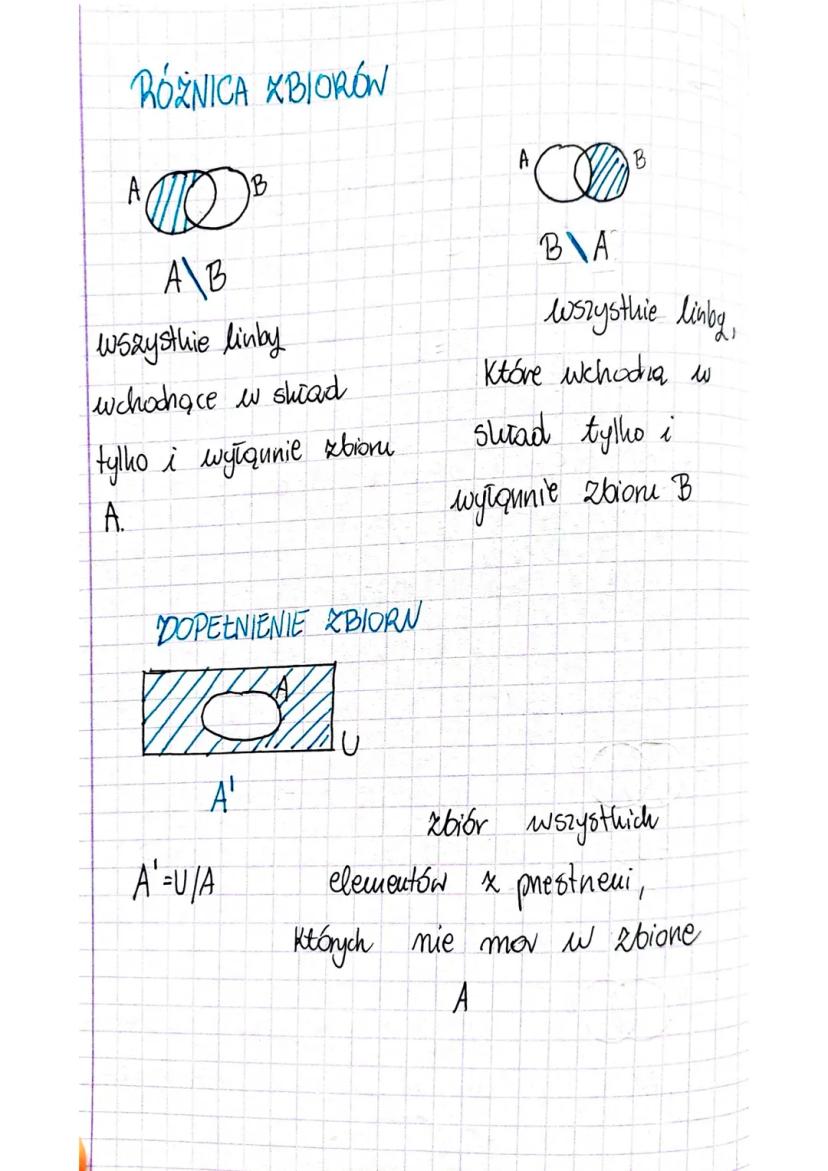 RÓŻNICA ZBIORÓW
A B
A\B
wszystkie liczby
wchodzące w skład
tylko i wyłącznie zbioru
A.
A B
B\A
wszystkie liczby,
które wchodzą w
skład tylko i
wyłącznie zbioru B
DOPEŁNIENIE ZBIORU
A
U
A'
A'=U/A
zbiór wszystkich
elementów z przestrzeni,
których nie ma w zbiorze
A